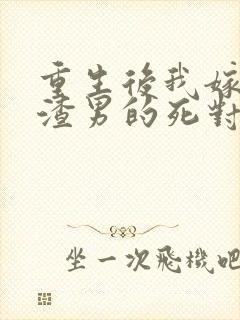 重生後我嫁
渣男的死對
坐一次飛機吧